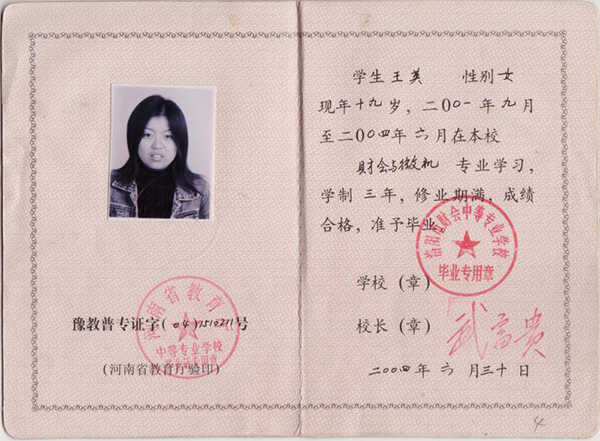 豫教普专证字(04)1510211号
(河南省教育厅验印)
河南省教育厅
中等专业学校
学生 王英 性别 女
现年十九岁,二00一年九月
至二00四年六月在本校
财会与微机 专业学习,
学制 三年,修业期满,成绩
合格,准予毕业
河南省财会中等专业学校
毕业专用章
学校(章)
校长(章)
武富贵
二00四年 六 月三十日
4